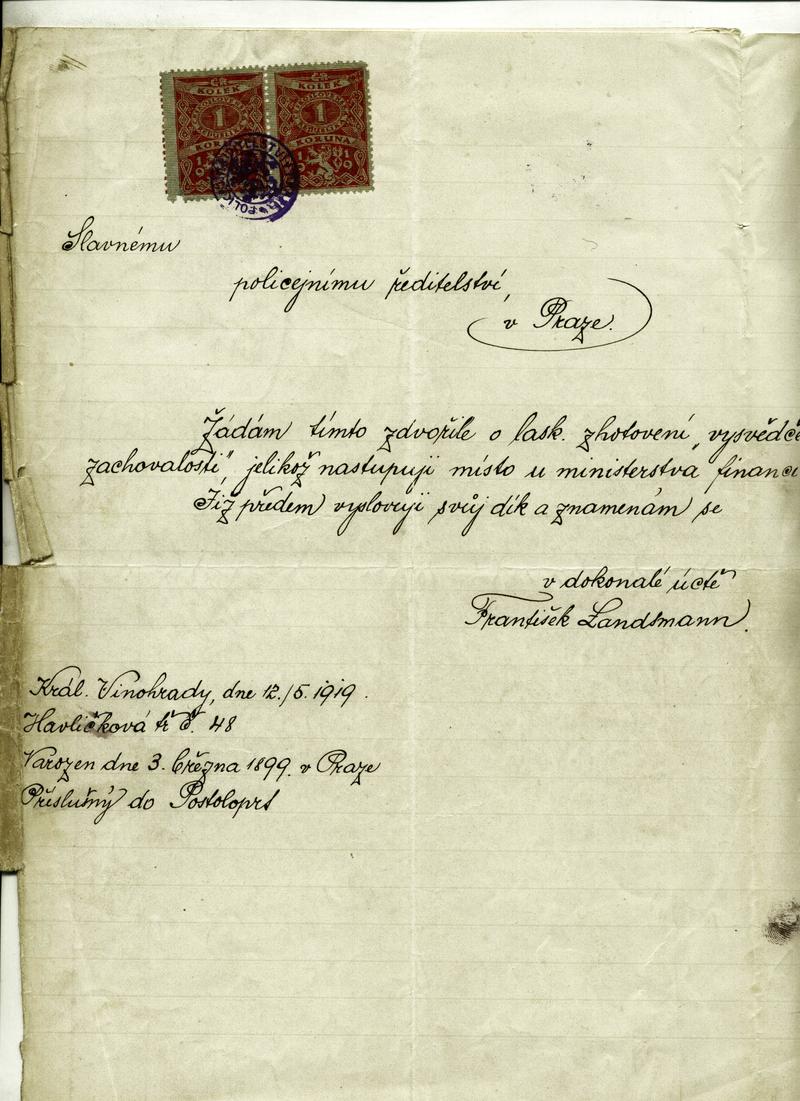 ČR ČR
KOLEK KOLEK
1 1
KORUNA
1919
Slavnému
policejnímu ředitelství,
v Praze.
Žádám tímto zdvořile o lask. zhotovení „vysvědče
zachovalosti", jelikož nastupuji místo u ministerstva financí
Již předem vyslovuji svůj dík a znamenám se
v dokonalé úctě
František Landsmann.
Král. Vinohrady, dne 12./5. 1919.
Havlíčková tř. č. 48
Narozen dne 3. března 1899. v Praze
Příslušný do Postoloprt